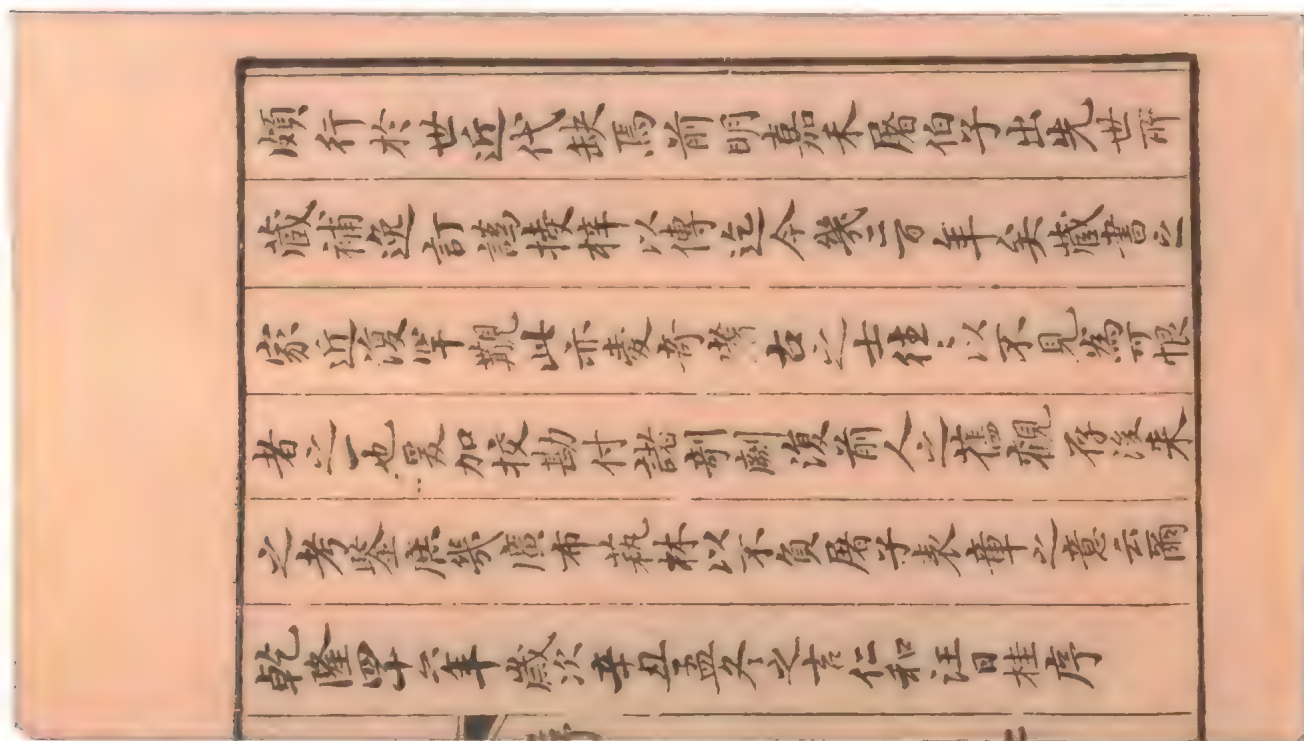 頗行於世近代缺焉前明嘉禾屠伯子出先世所
藏補逸訂譌授梓以傳迄今幾二百年矣藏書之
家近復罕覯此亦愛奇嗜古之士往〻以不見為可恨
者之一也爰加挍勘付諸剞劂復前人之舊觀存後来
之考鑒庶幾廣布藝林以不負屠子表章之意云爾
乾隆四十六年歲次辛丑孟冬之吉仁和汪日桂序